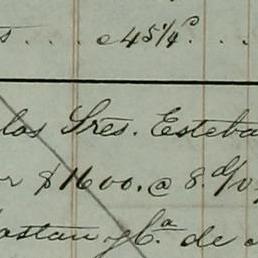 s . . . c 45¼ c . . .
los Sres. Esteba
r $1600. @ 8. d/v
astan y Ca. de